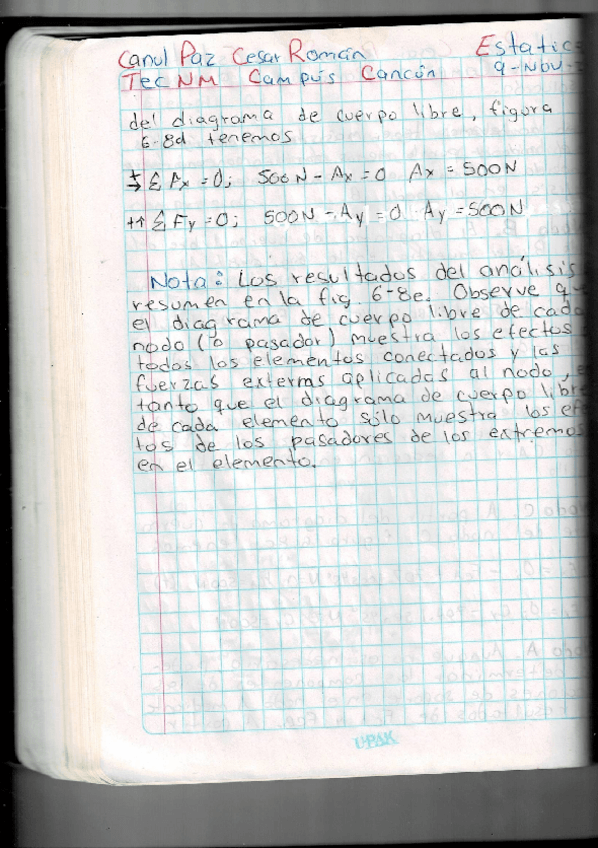 Canul Paz Cesar Román Estatic
TecNM Campus Cancún 9-Nov-
del diagrama de cuerpo libre, figura
6-8d tenemos
+→ ΣAx=0; 500N-Ax=0 Ax=500N
+↑ ΣFy=0; 500N-Ay=0 Ay=500N
Nota: Los resultados del análisis
resumen en la fig. 6-8e. Observe qu
el diagrama de cuerpo libre de cada
nodo (o pasador) muestra los efectos
todos los elementos conectados y las
fuerzas externas aplicadas al nodo, e
tanto que el diagrama de cuerpo libre
de cada elemento sólo muestra los efe
tos de los pasadores de los extremos
en el elemento.
UPAK